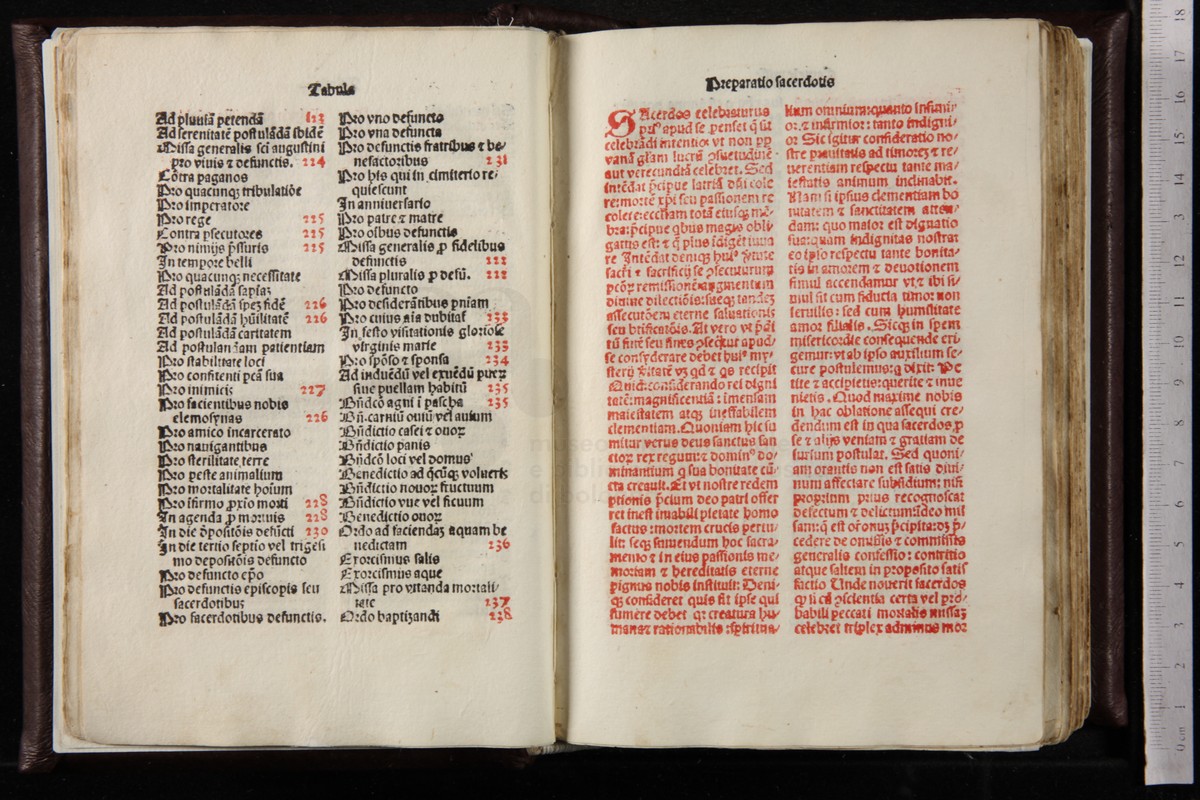 Tabula
Ad pluuiā petendā 123
Ad serenitatē postulādā ibidē
Missa generalis sci augustini
pro viuis ⁊ defunctis. 224
Cōtra paganos
Pro quacunqꝫ tribulatiōe
Pro imperatore
Pro rege 225
Contra ꝑsecutores 225
Pro nimijs p̄ssuris 225
In tempore belli
Pro quacunqꝫ necessitate
Ad postulādā sapiaꝫ
Ad postulādā speꝫ fidē 226
Ad postulādā hūilitatē 226
Ad postulādā caritatem
Ad postulandam patientiam
Pro stabilitate loci
Pro confitenti pctā sua
Pro inimicis 227
Pro facientibus nobis
elemosynas 226
Pro amico incarcerato
Pro nauigantibus
Pro sterilitate terre
Pro peste animalium
Pro mortalitate hoium
Pro īfirmo ꝓxio morti 228
In agenda ꝓ mortuis 228
In die ōpositōis defūcti 230
In die tertio septio vel trigesi
mo depositōis defuncto
Pro defuncto ep̄o
Pro defunctis episcopis seu
sacerdotibus
Pro sacerdotibus defunctis.
Pro vno defuncto
Pro vna defuncta
Pro defunctis fratribus ⁊ be⸗
nefactoribus 231
Pro his qui in cimiterio re⸗
quiescunt
In anniuersario
Pro patre ⁊ matre
Pro oībus defunctis
Missa generalis ꝓ fidelibus
defunctis 232
Missa pluralis ꝓ defū. 232
Pro defuncto
Pro desiderātibus pniam
Pro cuius aīa dubitat̄ 233
In festo visitationis gloriose
virginis marie 233
Pro spōso ⁊ sponsa 234
Ad induēdū vel exuēdū pueꝝ
siue puellam habitū 235
Bn̄dcō agni ī pascha 235
Bn̄. carniū ouiū vel auium
Bn̄dictio casei ⁊ ouoꝝ
Bn̄dictio panis
Bn̄dcō loci vel domus
Benedictio ad q̄cūqꝫ volueris
Bn̄dictio nouoꝝ fructuum
Bn̄dictio vue vel ficuum
Benedictio ouoꝝ
Ordo ad faciendaꝫ aquam be
nedictam 236
Exorcismus salis
Exorcismus aque
Missa pro vitanda mortali⸗
tate 237
Ordo baptizandi 238
Preparatio sacerdotis
SAcerdos celebraturus
pri⁹ apud se penset q̄ sit
celebrādi intentio: vt non ꝓp
vanā gl̄am lucrū ꝯsuetudinē
aut verecundiā celebret. Sed
intēdat p̄cipue latriā dn̄i cole
re: mortē xp̄i seu passionem re
colere: ecclīam totā eiusqꝫ mē⸗
bra: p̄cipue qbus magis obli
gattis est: ⁊ q̄ plus īdigēt iuua
re Intēdat deniqꝫ hui⁹ v̄tute
sacri ⁊ sacrificij se ꝯsecuturum
pctōꝝ remissionē augmentum
diuine dilectiōis: sueqꝫ tandeꝫ
assecutōem eterne saluationis
seu btificatōis. At vero vt p̄di
tū fine seu fines ꝯseqt̄ur apud
se consyderare debet hui⁹ my⸗
sterij v̄itatē vꝫ qd ⁊ qs recipit
Quid: considerando rei digni
tatē: magnificentiā: imensam
maiestatem atqꝫ ineffabilem
clementiam. Quoniam hic su
mitur verus deus sanctus san
ctoꝝ rex regum: ⁊ domin⁹ do⸗
minantium q sua bonitate cū⸗
cta creauit. Et vt nostre redem
ptionis p̄cium deo patri offer
ret inest imabili pietate homo
factus: mortem crucis pertu⸗
lit: seqꝫ sumendum hoc sacra⸗
mento ⁊ in eius passionis me⸗
moriam ⁊ hereditatis eterne
pignus nobis instituit: Deni⸗
qꝫ consideret quis sit ipse qui
sumere debet qꝛ creatura hu⸗
mana ⁊ rationabilis: spiritua⸗
lium omnium: quanto inferi⸗
or. ⁊ infirmior: tanto indigni⸗
or Sic igitur consideratio no⸗
stre prauitatis ad timorē ⁊ re⸗
uerentiam respectu tante ma⸗
iestatis animum inclinabit.
Nam si ipsius clementiam bo
nitatem ⁊ sanctitatem atten⸗
dam: quo maior est dignatio
sua: quam indignitas nostra:
eo ipso respectu tante bonita⸗
tis in amorem ⁊ deuotionem
simul accendamur vt ⁊ ibi si⸗
mul sit cum fiducia timor non
seruilis: sed cum humilitate
amor filialis. Sicqꝫ in spem
misericordie consequende eri
gemur: vt ab ipso auxilium se⸗
cure postulemus: q dixit: Pe
tite ⁊ accipietis: querite ⁊ inue
nietis. Quod maxime nobis
in hac oblatione assequi cre⸗
dendum est in qua sacerdos ꝓ
se ⁊ alijs veniam ⁊ gratiam de
sursum postulat. Sed quoni⸗
am orantis non est satis diui⸗
num affectare subsidium: nisi
proprium prius recognoscat
defectum ⁊ delictum: ideo mis
sam: q̄ est oīonuꝫ p̄cipita: dꝫ p̄⸗
cedere de omissis ⁊ commissis
generalis confessio: contritio
atque saltem in proposito satis
factio Unde nouerit sacerdos
ꝙ si cū ꝯscientia certa vel pro⸗
babili peccati mortalis missaꝫ
celebret triplex adminus mor